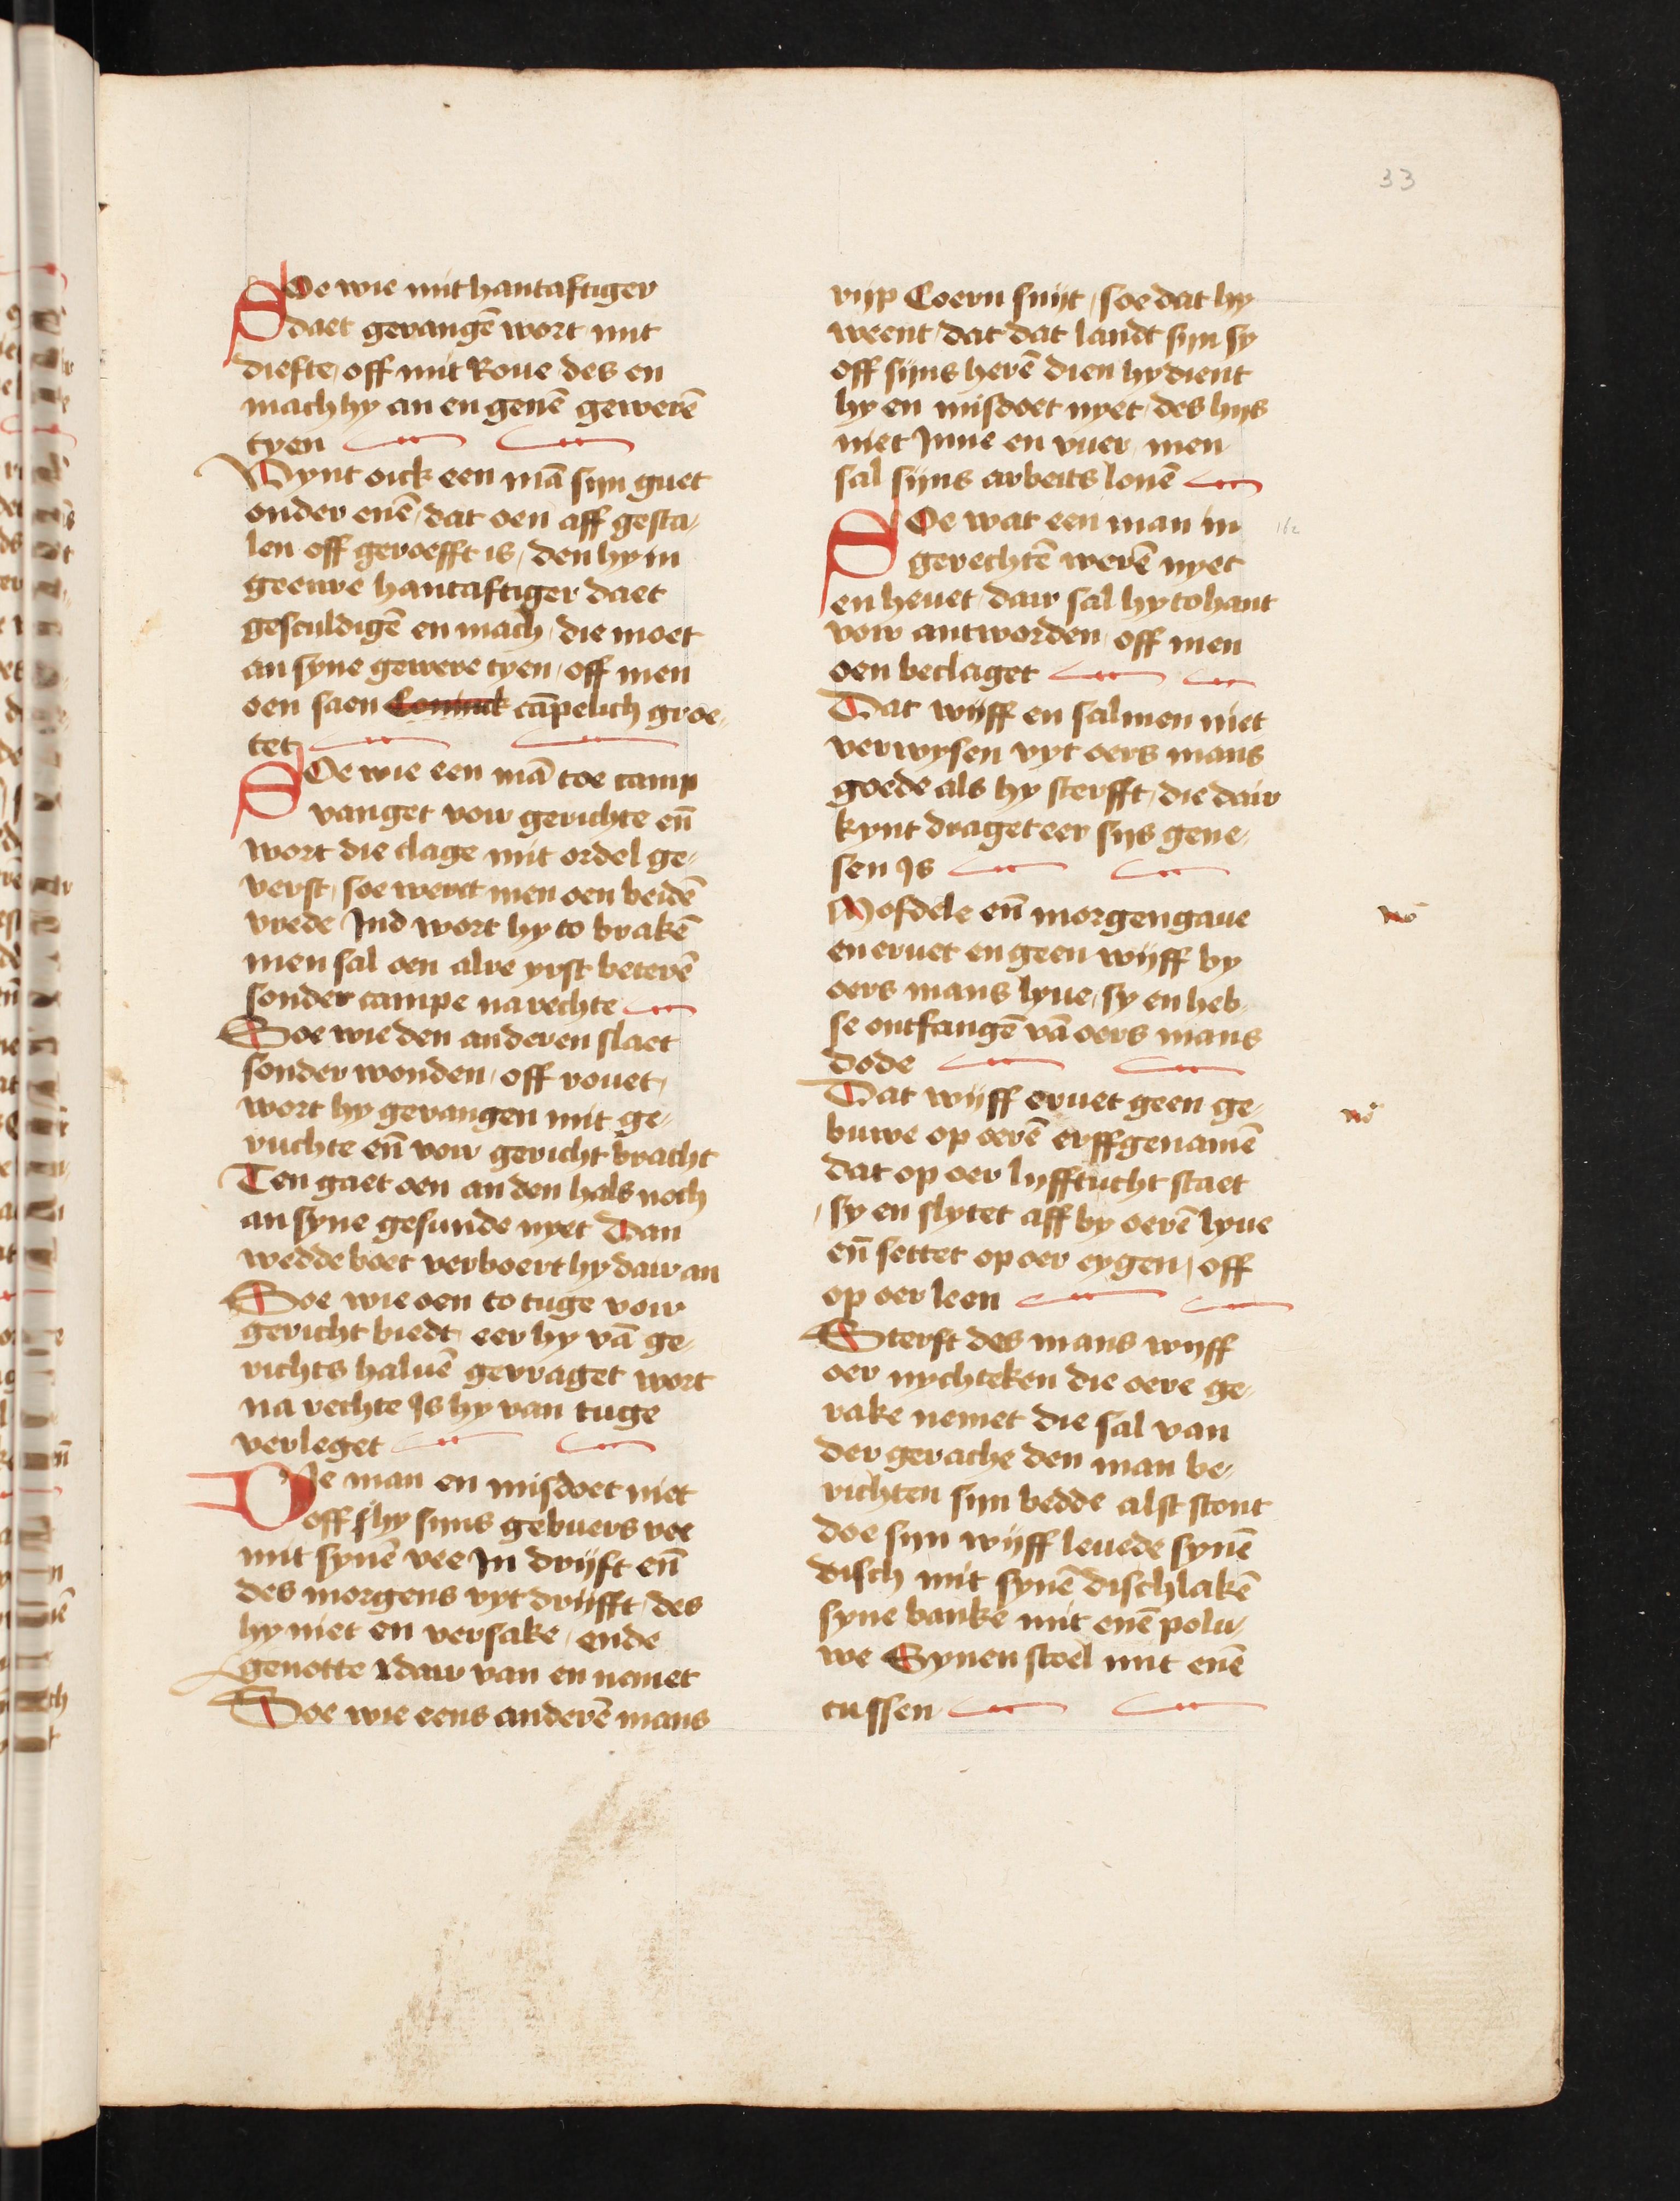 33
SOe wie mit hantaftiger
daet gevangē wort mit
diefte, off mit Roue des en
mach hy an en genē gewerē
tyen
Vynt oick een mā sijn guet
onder enē, dat oen aff gesta-
len off geroefft is, den hy in
geenre hantaftiger daet
gesculdigē en mach, die moet
an syne gewere tyen, off men
oen saen cāpelich groe-
tet
SOe wie een mā toe camp
vanget voir gerichte eñ
wort die clage mit ordel ge-
verst, soe werct men oen beidē
vrede Ind wort hy to brakē
men sal oen alre yrst beterē
sonder campe na rechte
Soe wie den anderen slaet
sonder wonden, off rouet,
wort hy gevangen mit ge-
ruchte eñ voir gericht bracht
Ten gaet oen an den hals noch
an syne gesunde nyet Dan
wedde boet verboert hy dair an
Soe wie oen to tuge voir
gericht biedt, eer hy vā ge-
richts haluē gevraget wort
na rechte Is hy van tuge
verleget
Die man en misdoet niet
off hy sijns gebuers vee
mit synē vee In drijft eñ
des morgens vyt drijfft, des
hy niet en versake, ende
genotte dair van en nemet
Soe wie eens anderē mans
rijp Coern snijt, soe dat hy
weent, dat dat landt sijn sy
off sijns herē dien hy dient
hy en misdoet nyet, des hijs
niet Inne en vuer, men
sal sijns arbeits lonē
SOe wat een man in
gerechtē werē nyet
en heuet, dair sal hy to hant
voir antworden, off men
oen beclaget
162
Dat wijff en sal men niet
verwysen vyt oers mans
goede als hy sterfft, die dair
kynt draget eer sijs gene-
sen Is
Mosdele eñ morgengaue
en eruet en geen wijff by
oers mans lyue, sy en heb-
se ontfangē vā oers mans
dode
no
Dat wijff eruet geen ge-
buwe op oerē erffgenamē
dat op oer lijfftucht staet
sy en slytet aff by oerē lyue
eñ settet op oer eygen, off
op oer leen
no
Sterft des mans wijff
oer nychteken die oere ge-
rake nemet die sal van
der gerache den man be-
richten sijn bedde alst stont
doe sijn wijff leuede synē
disch mit synē dischlakē
syne banke mit enē polu-
we Synen stoel mit enē
cussen